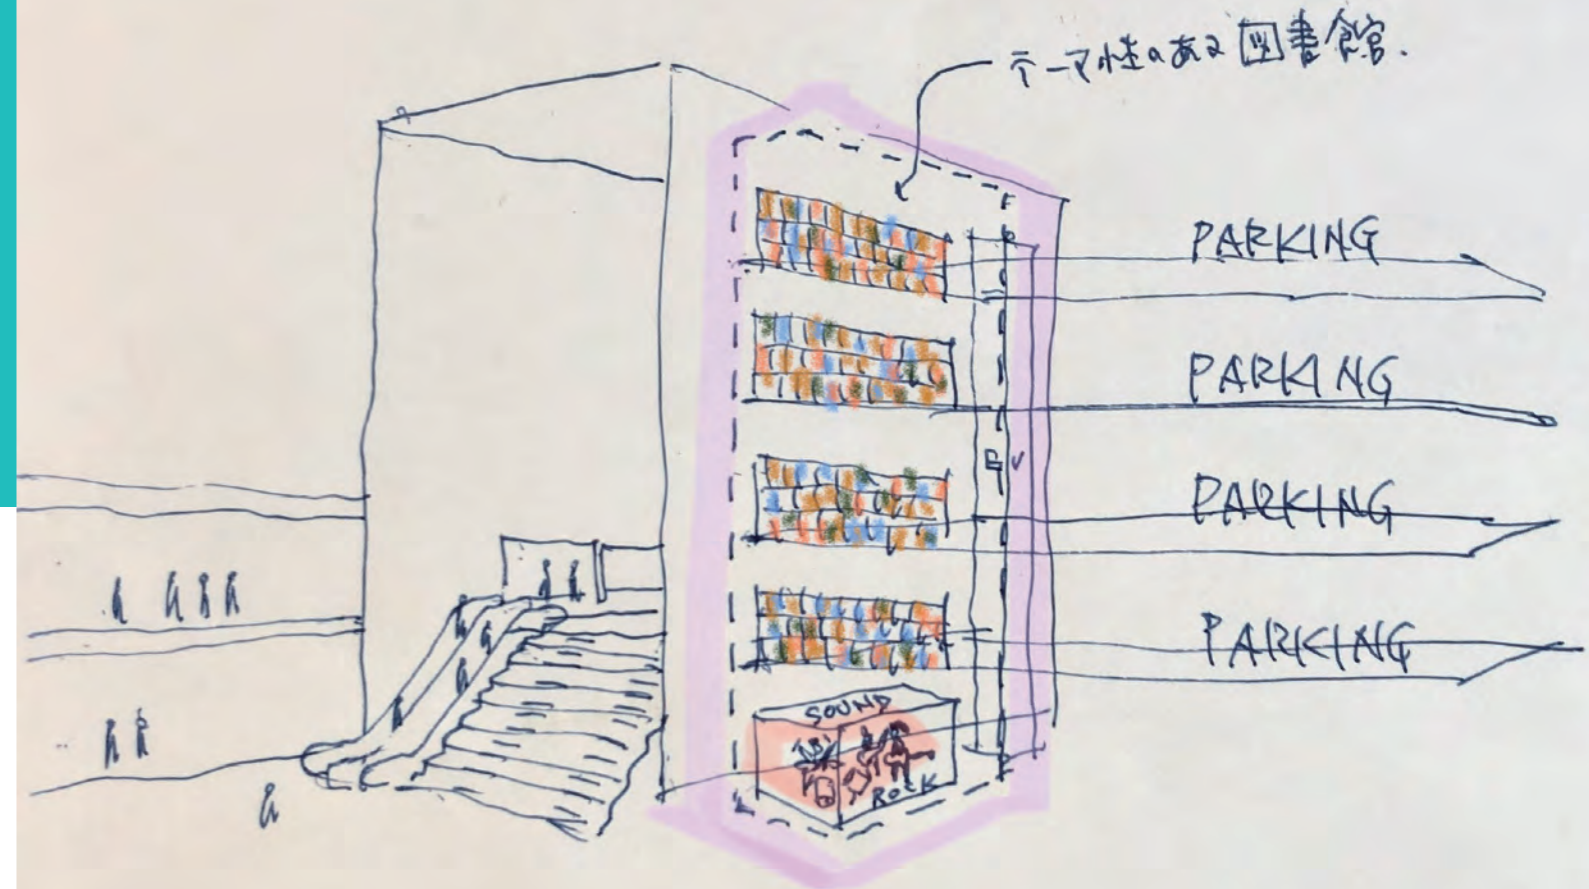 テーマ性のある図書館.
PARKING
PARKING
EV
PARKING
PARKING
SOUND
ROCK